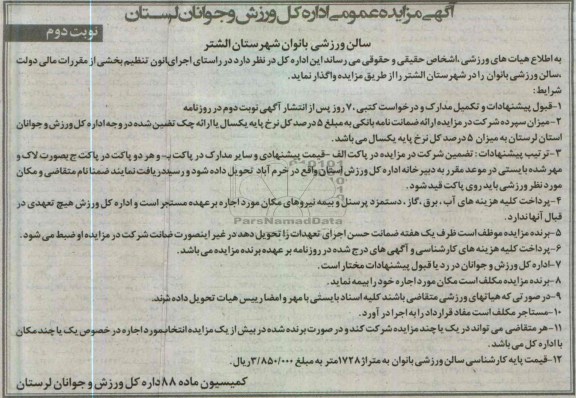 آگهی مزایده عمومی اداره کل ورزش و جوانان لرستان
نوبت دوم
سالن ورزشی بانوان شهرستان الشتر
به اطلاع هیات های ورزشی ،اشخاص حقیقی و حقوقی می رساند این اداره کل در نظر دارد در راستای اجرای قانون تنظیم بخشی از مقررات مالی دولت
،سالن ورزشی بانوان را در شهرستان الشتر را از طریق مزایده واگذار نماید.
شرایط:
۱-قبول پیشنهادات و تکمیل مدارک و درخواست کتبی ،۷ روز پس از انتشار آگهی نوبت دوم در روزنامه
۲-میزان سپرده شرکت در مزایده ارائه ضمانت نامه بانکی به مبلغ ۵ درصد کل نرخ پایه یکسال یا ارائه چک تضمین شده در وجه اداره کل ورزش و جوانان
استان لرستان به میزان ۵ درصد کل نرخ پایه یکسال می باشد.
۳-ترتیب پیشنهادات : تضمین شرکت در مزایده در پاکت الف -قیمت پیشنهادی و سایر مدارک در پاکت ب- و هر دو پاکت در پاکت ج بصورت لاک و
مهر شده بایستی در موعد مقرر به دبیرخانه اداره کل ورزش استان واقع در خرم آباد تحویل داده شود و رسید دریافت نمایند ضمنا نام متقاضی و مکان
مورد نظر ورزشی باید روی پاکت قید شود.
۴-پرداخت کلیه هزینه های آب ، برق ،گاز ، دستمزد پرسنل و بیمه نیروهای مکان مورد اجاره بر عهده مستجر است و اداره کل ورزش هیچ تعهدی در
قبال آنها ندارد.
۵-برنده مزایده موظف است ظرف یک هفته ضمانت حسن اجرای تعهدات را تحویل دهد در غیر اینصورت ضمانت شرکت در مزایده او ضبط می شود.
۶-پرداخت کلیه هزینه های کارشناسی و آگهی های درج شده در روزنامه بر عهده برنده مزایده می باشد.
۷-اداره کل ورزش و جوانان در رد یا قبول پیشنهادات مختار است.
۸-برنده مزایده مکلف است مکان مورد اجاره خود را بیمه نماید.
۹-در صورتی که هیاتهای ورزشی متقاضی باشند کلیه اسناد بایستی با مهر و امضا رییس هیات تحویل داده شوند.
۱۰-مستاجر مکلف است مفاد قرارداد را به اجرا در آورد.
۱۱-هر متقاضی می تواند در یک یا چند مزایده شرکت کند و در صورت برنده شده در بیش از یک مزایده انتخاب مورد اجاره در خصوص یک یا چند مکان
با اداره کل می باشد.
۱۲-قیمت پایه کارشناسی سالن ورزشی بانوان به متراژ ۱۷۲۸متر به مبلغ ۳/۸۵۰/۰۰۰ریال.
کمیسیون ماده ۸۸اداره کل ورزش و جوانان لرستان
ParsNamadData